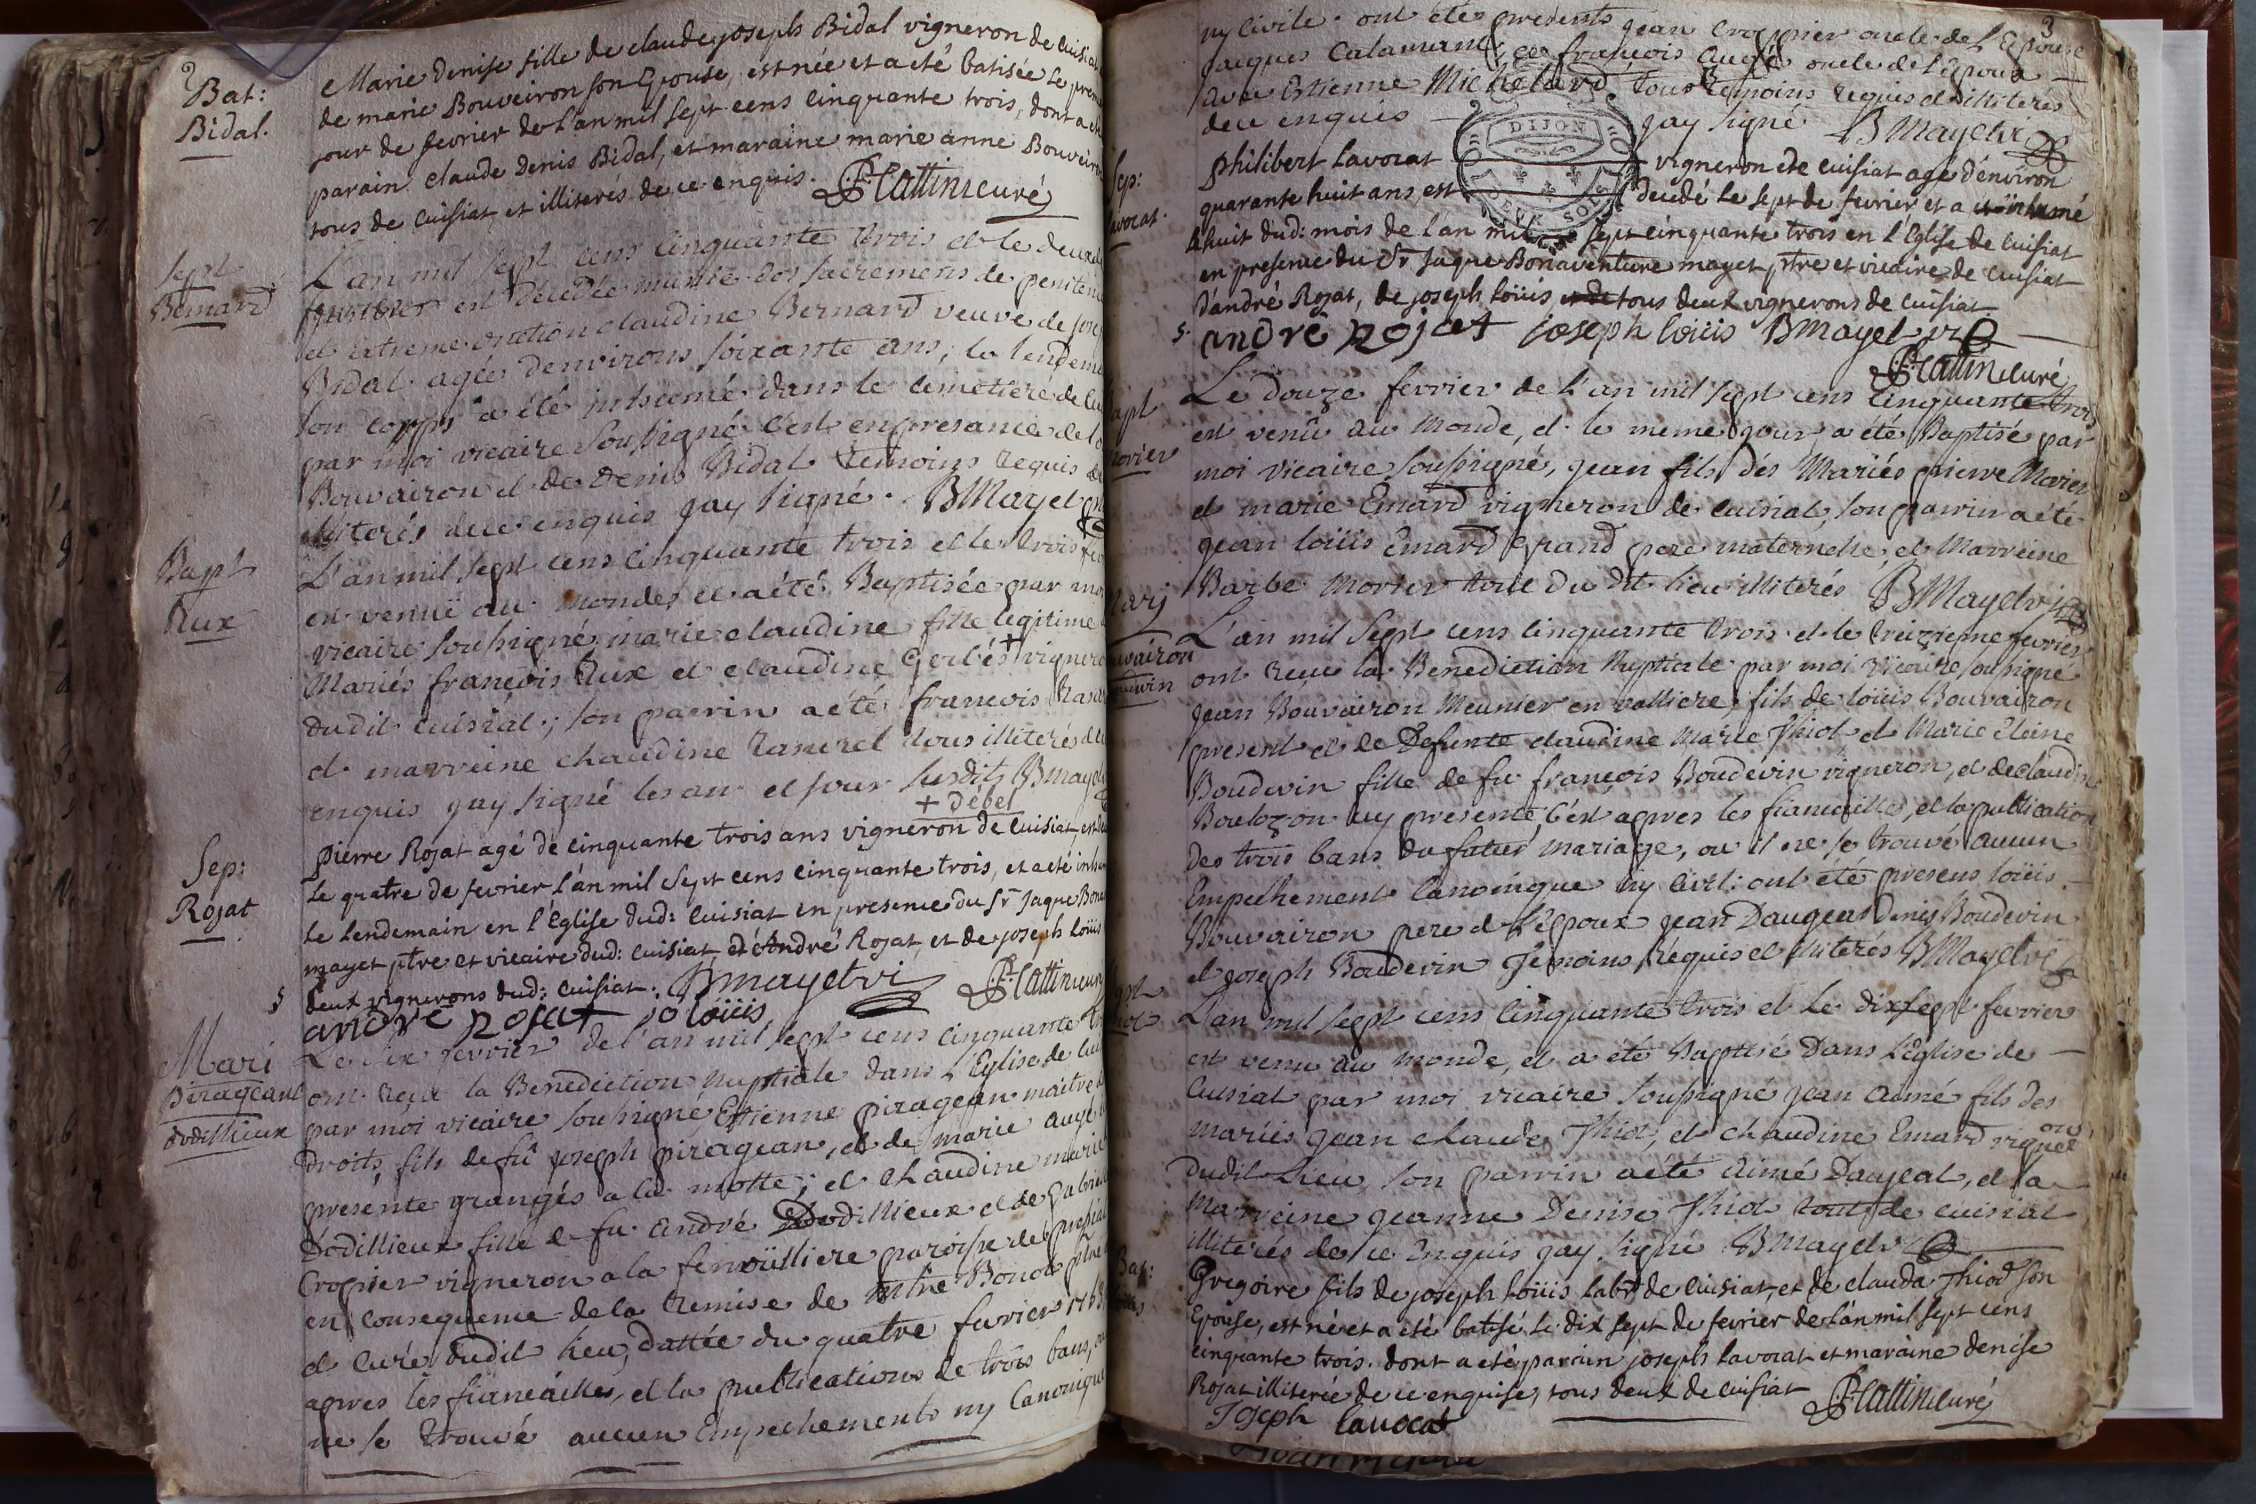 Bat:
Bidal.
Marie Denise fille de claude joseph Bidal vigneron de cuisiat
de marie Bouveiron son Epouse, est née et a eté batisée le prem
jour de fevrier de l'an mil sept cens cinquante trois, dont a eté
parain claude Denis Bidal, et maraine marie anne Bouveiron
tous de cuisiat et illiterés de ce enquis. P: Cattin curé
Sept
Bernard
L'an mil sept cens cinquante trois et le deux de
fevrier est décédée munie des sacremens de penitence
et extreme onction claudine Bernard veuve de josep
Bidal agée d'environs soixante ans, le lendemain
son corps a été inhumé dans le cimetiere de Cui
par moi vicaire soussigné c'est en presance de
Bouvairon et de Denis Bidal temoins requis
illiterés de ce enquis j'ay signé. BMayet
Bapt
Rux
L'an mil sept cens cinquante trois et le trois fev
est venuë au monde et a été Baptisée par moi
vicaire soussigné marie claudine fille legitime
Mariés françois Rux et claudine Gerbés + vigneron
dudit cuisiat; son parrin a été françois
et marreine claudine Ravierel tous illiterés de ce
enquis j'ay signé les an et jour susdits BMayet
+ Debel
Sep:
Rojat
pierre Rojat agé de cinquante trois ans vigneron de cuisiat, est
le quatre de fevrier l'an mil sept cens cinquante trois, et a eté inhu
le lendemain en l'Eglise dud: cuisiat en presence du Sr Jaque Bona
mayet ptre et vicaire dud: cuisiat d'André Rojat, et de joseph Loüis
deux vignerons dud: cuisiat. BMayet vi P: Cattin curé
andre rojat jo loüis
Mari
Pirageant
dodillieux
Le six fevrier de l'an mil sept cens cinquante tr
ont reçu la Benediction nuptiale dans l'Eglise de Cui
par moi vicaire soussigné Estienne piragean maitre
droits, fils de fû joseph piragean, et de marie augé
presente grangés a la motte; et claudine marie
Dodillieux fille de fu andré Dodillieux et de
Cropier vigneron a la fenoüilliere paroisse de
en consequence de la remise de Mtre Bonot ptre
et curé dudit lieu, dattée du quatre fevrier 1753
apres les fiançailles, et la publications de trois bans, ou
ne se trouvé aucun Empechements ny Canonique
3
ny civile. ont étés presents jean Croppier oncle de l'Epouse
jacques Calamand, et françois Augé oncle de l'Epoux
avec Estienne Michelard. tous temoins requis et illiterés
de ce enquis j'ay signé BMayet vi
DIJON
DEUX SOLS
Sep:
Lavocat.
Philibert Lavocat vigneron de cuisiat agé d'environ
quarante huit ans, est decedé le sept de fevrier et a eté inhumé
le huit dud: mois de l'an mil sept cinquante trois en l'Eglise de cuisiat
en presence du Sr Jaque Bonaventure mayet ptre et vicaire de cuisiat
d'andré Rojat, de joseph Loüis et de tous deux vignerons de cuisiat
andré rojat joseph loüis BMayet vi
P: Cattin curé
Bapt
Morier
Le douze fevrier de l'an mil sept cens cinquante trois
est venû au monde, et le meme jour a été Baptisé par
moi vicaire soussigné, jean fils dés Mariés pierre Morier
et marie Emard vigneron de cuisiat, son parrin a été
jean loüis Emard grand pere maternelle, et Marreine
Barbe Morier tous du dit lieu illiterés BMayet vi
Mary
Bouvairon
Boudevin
L'an mil sept cens cinquante trois et le treizieme fevrier
ont reçu la Benediction Nuptiale par moi vicaire soussigné
jean Bouvairon Meunier en valliere, fils de loüis Bouvairon
present et de Defunte claudine Marie Thiot et Marie Elaine
Boudevin fille de fu françois Boudevin vigneron, et de claudine
Boulozon icy presente, C'est apres les fiançailles, et la publication
des trois bans du futur mariage, ou il ne se trouvé aucun
Empechement Canonique ny Civil: ont été presens loüis
Bouvairon pere de l'époux jean Daugeat Denis Boudevin
et joseph Boudevin Temoins Requis et illiterés BMayet vi
Bapt
Thiot
L'an mil sept cens cinquante trois et le dix sept fevrier
est venu au monde, et a été Baptisé dans l'église de
Cuisiat par moi vicaire soussigné jean aimé fils des
mariés jean claude Thiot, et claudine Emard vigneron
dudit lieu, son parrin a été aimé Daujeat, et la
Marreine jeanne Denise Thiot tous de cuisiat
illiterés de ce Enquis j'ay signé BMayet vi
Bat:
Loüis
Gregoire fils de joseph Loüis labr de cuisiat, et de clauda Thiod son
Epouse, est né et a eté batisé le dix sept de fevrier de l'an mil sept cens
cinquante trois. dont a eté parain joseph Lavocat et maraine denise
Rojat illiterée de ce enquise, tous deux de cuisiat P: Cattin curé
Joseph Lavocat